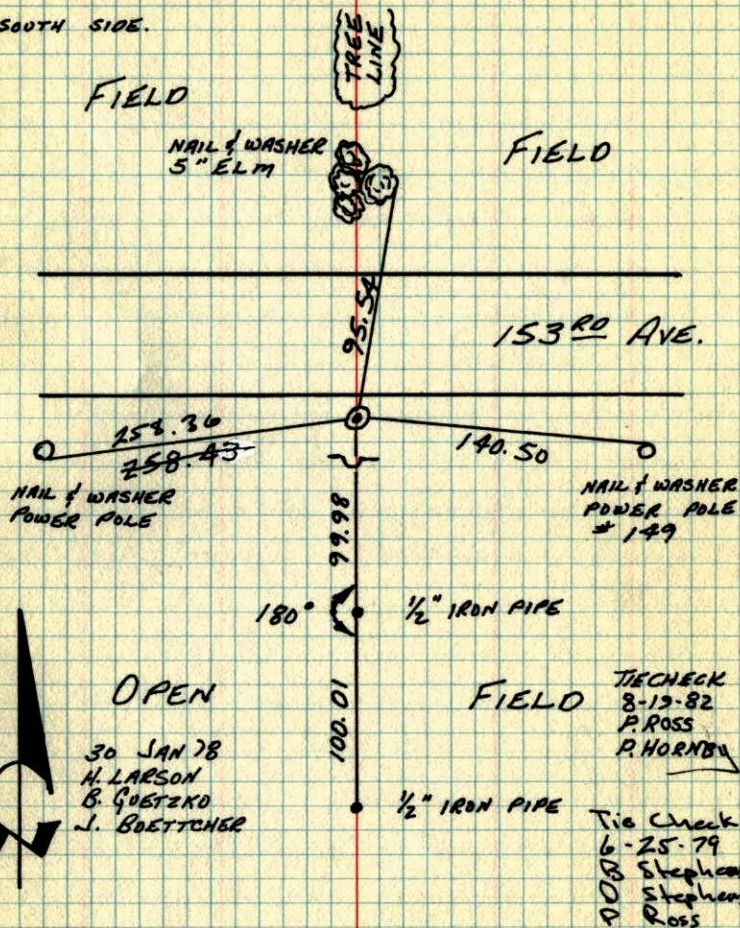 SOUTH SIDE.
TREE
LINE
FIELD
NAIL & WASHER
5" ELM
FIELD
95.54
153RD AVE.
258.36
258.43
140.50
NAIL & WASHER
POWER POLE
NAIL & WASHER
POWER POLE
# 149
99.98
180°
1/2" IRON PIPE
OPEN
100.01
FIELD
TIECHECK
8-19-82
P. ROSS
P. HORNBY
30 JAN 78
H. LARSON
B. GOETZKO
J. BOETTCHER
1/2" IRON PIPE
Tie Check
6-25-79
B
D
P Ross